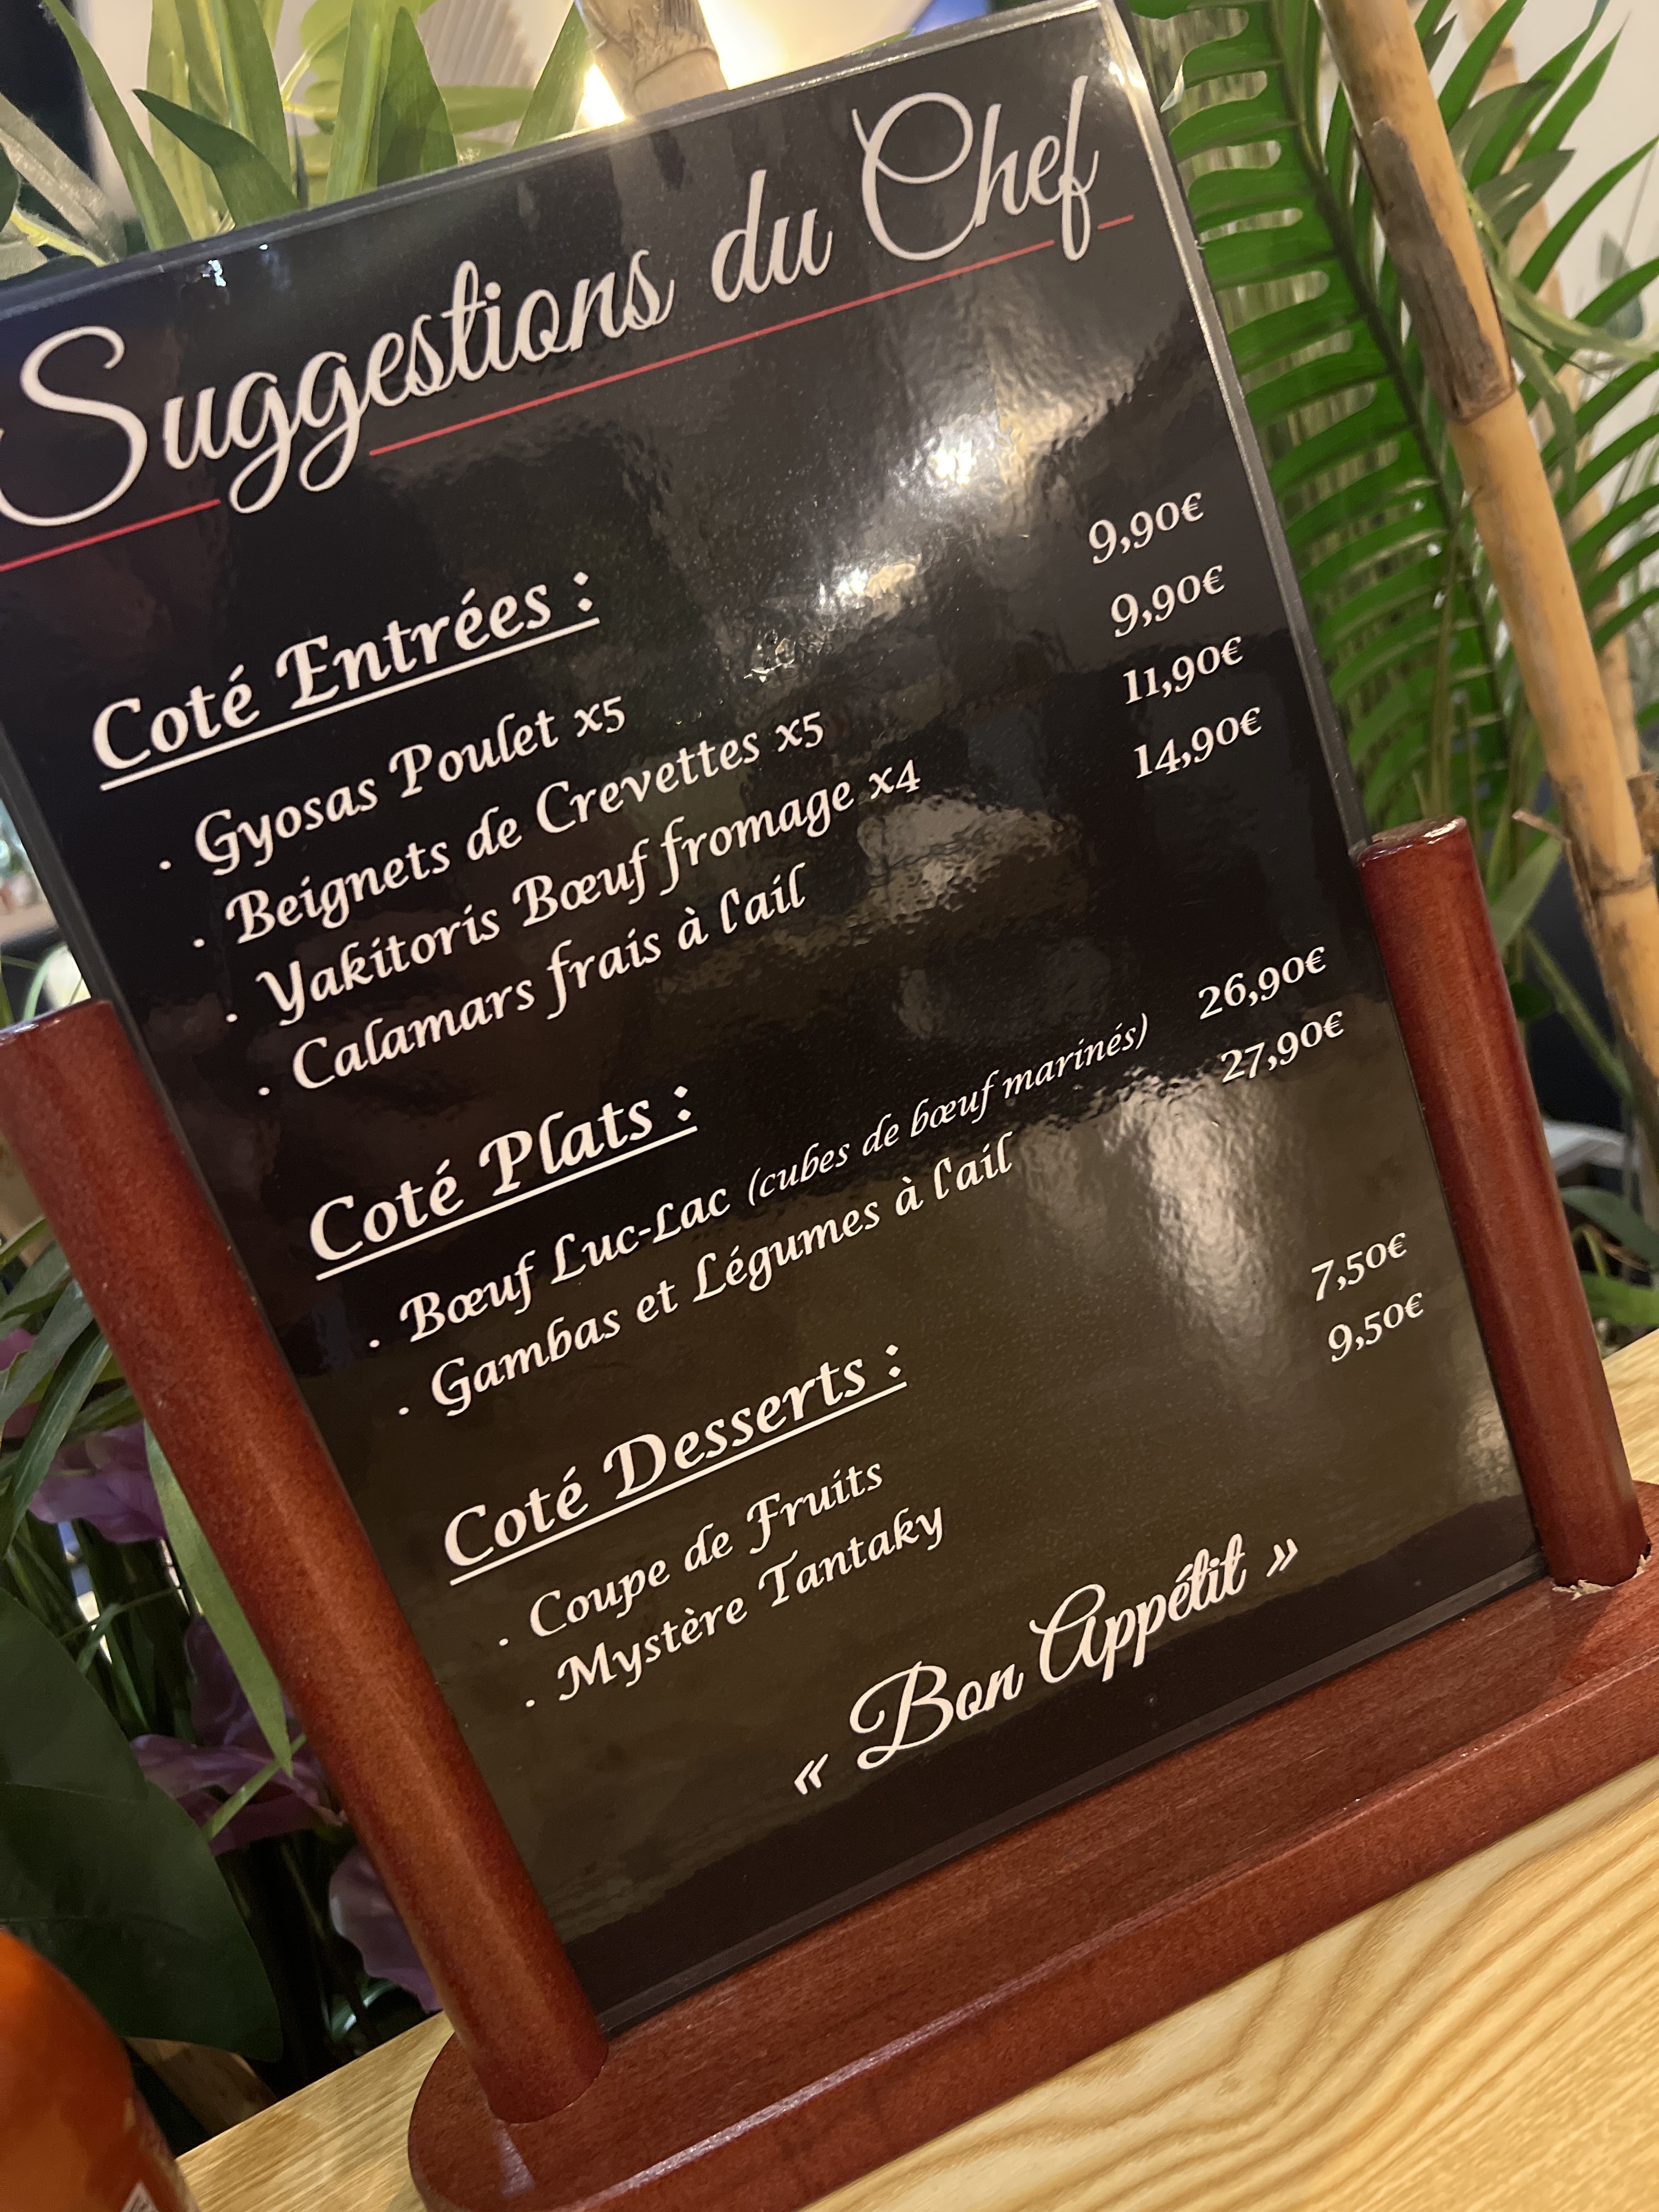 Suggestions du Chef
Coté Entrées :
. Gyosas Poulet x5 9,90€
. Beignets de Crevettes x5 9,90€
. Yakitoris Bœuf fromage x4 11,90€
. Calamars frais à l'ail 14,90€
Coté Plats :
. Bœuf Luc-Lac (cubes de bœuf marinés) 26,90€
. Gambas et Légumes à l'ail 27,90€
Coté Desserts :
. Coupe de Fruits 7,50€
. Mystère Tantaky 9,50€
« Bon Appétit »